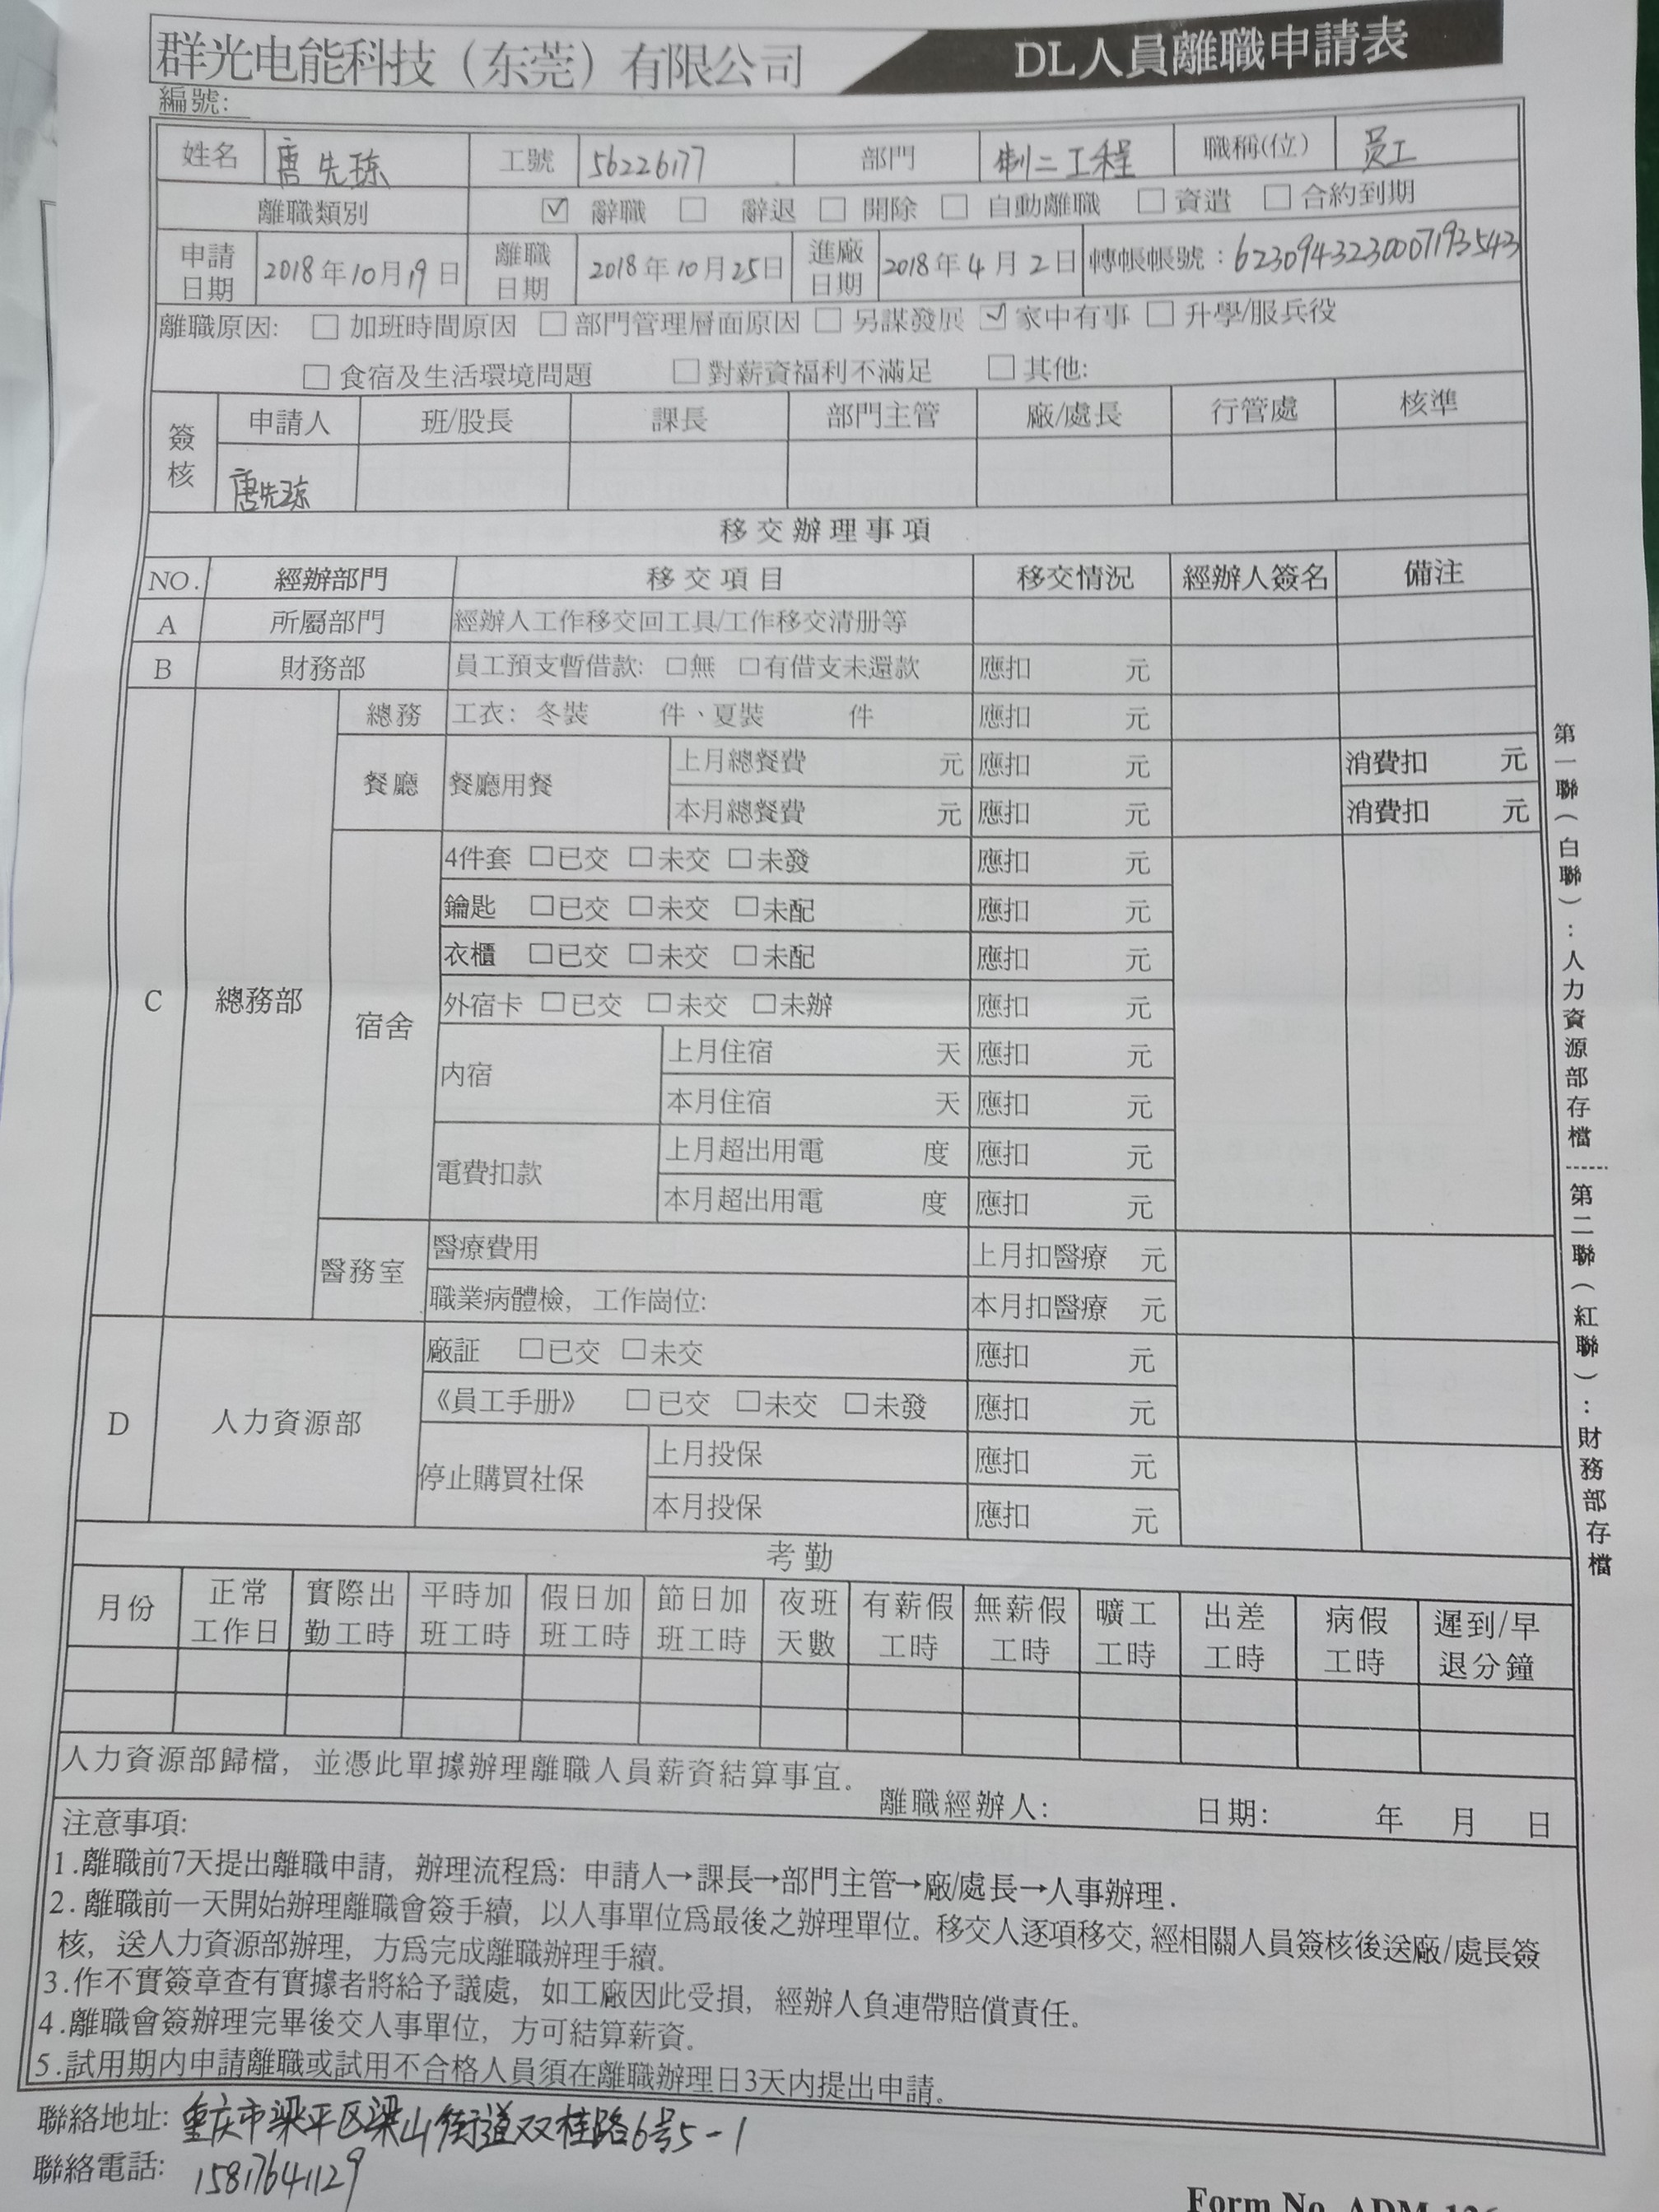 群光电能科技（东莞）有限公司 DL人員離職申請表
編號:
姓名 唐先琼 工號 56226177 部門 制二工程 職稱(位) 员工
離職類別 ☑ 辭職 □ 辭退 □ 開除 □ 自動離職 □ 資遣 □ 合約到期
申請日期 2018年10月19日 離職日期 2018年10月25日 進廠日期 2018年4月2日 轉帳帳號：6230943230007193543
離職原因: □ 加班時間原因 □ 部門管理層面原因 □ 另謀發展 ☑ 家中有事 □ 升學/服兵役
□ 食宿及生活環境問題 □ 對薪資福利不滿足 □ 其他:
簽核 申請人 班/股長 課長 部門主管 廠/處長 行管處 核準
唐先琼
移交辦理事項
NO. 經辦部門 移交項目 移交情況 經辦人簽名 備注
A 所屬部門 經辦人工作移交回工具/工作移交清册等
B 財務部 員工預支暫借款: □無 □有借支未還款 應扣 元
C 總務部
總務 工衣: 冬裝 件、夏裝 件 應扣 元
餐廳 餐廳用餐 上月總餐費 元 應扣 元 消費扣 元
本月總餐費 元 應扣 元 消費扣 元
宿舍
4件套 □已交 □未交 □未發 應扣 元
鑰匙 □已交 □未交 □未配 應扣 元
衣櫃 □已交 □未交 □未配 應扣 元
外宿卡 □已交 □未交 □未辦 應扣 元
内宿 上月住宿 天 應扣 元
本月住宿 天 應扣 元
電費扣款 上月超出用電 度 應扣 元
本月超出用電 度 應扣 元
醫務室 醫療費用 上月扣醫療 元
職業病體檢, 工作崗位: 本月扣醫療 元
D 人力資源部
廠証 □已交 □未交 應扣 元
《員工手册》 □已交 □未交 □未發 應扣 元
停止購買社保 上月投保 應扣 元
本月投保 應扣 元
考勤
月份 正常工作日 實際出勤工時 平時加班工時 假日加班工時 節日加班工時 夜班天數 有薪假工時 無薪假工時 曠工工時 出差工時 病假工時 遲到/早退分鐘
人力資源部歸檔, 並憑此單據辦理離職人員薪資結算事宜。
離職經辦人: 日期: 年 月 日
注意事項:
1.離職前7天提出離職申請, 辦理流程爲: 申請人→課長→部門主管→廠/處長→人事辦理.
2.離職前一天開始辦理離職會簽手續, 以人事單位爲最後之辦理單位。移交人逐項移交,經相關人員簽核後送廠/處長簽
核, 送人力資源部辦理, 方爲完成離職辦理手續。
3.作不實簽章查有實據者將給予議處, 如工廠因此受損, 經辦人負連帶賠償責任。
4.離職會簽辦理完畢後交人事單位, 方可結算薪資。
5.試用期内申請離職或試用不合格人員須在離職辦理日3天内提出申請。
聯絡地址: 重庆市梁平区梁山街道双桂路6号5-1
聯絡電話: 15817641129
第一聯(白聯):人力資源部存檔 第二聯(紅聯):財務部存檔
Form No. ADM-126